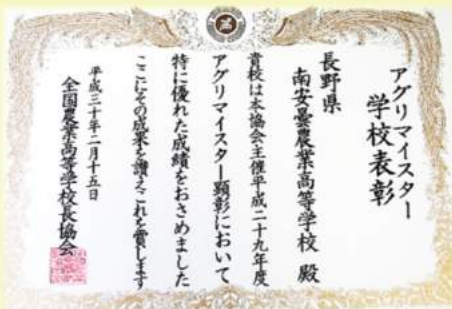 アグリマイスター
学校表彰
長野県
南安曇農業高等学校 殿
貴校は本協会主催平成二十九年度
アグリマイスター顕彰において
特に優れた成績をおさめました
ここにその成果を讃えこれを賞します
平成三十年二月十五日
全国農業高等学校長協会